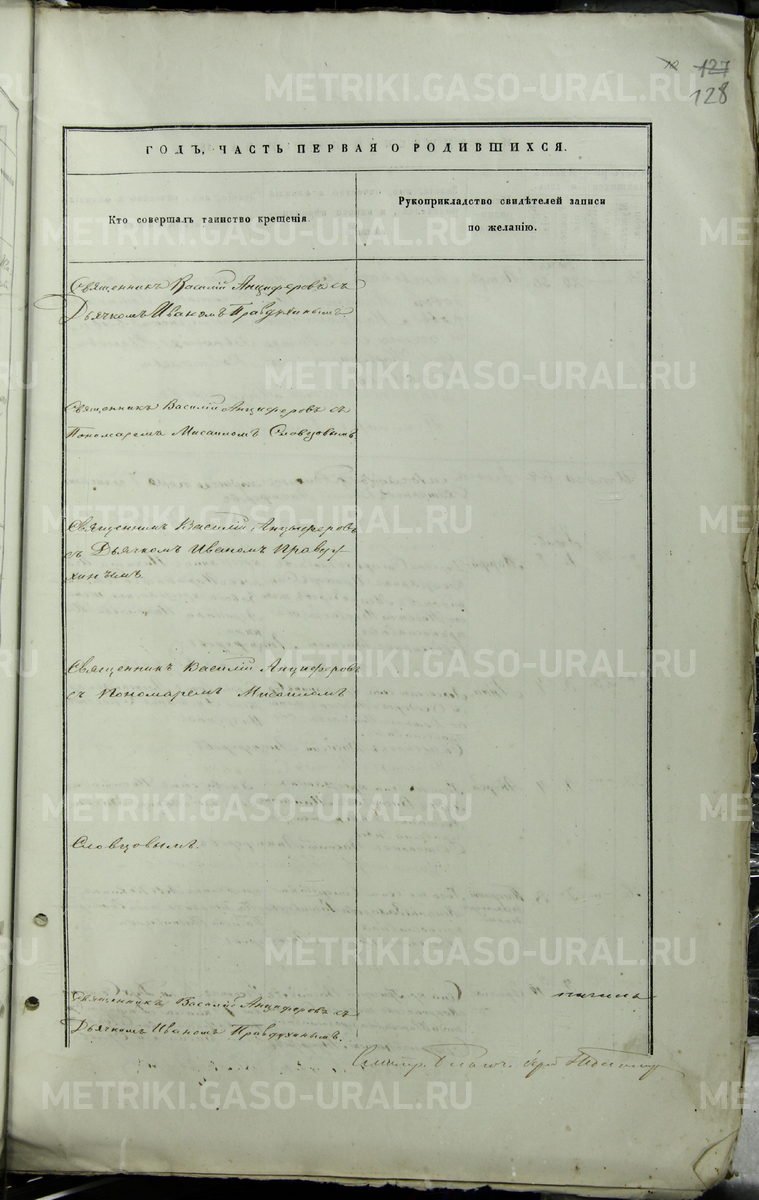 127
128
ГОДЪ, ЧАСТЬ ПЕРВАЯ О РОДИВШИХСЯ.
Кто совершалъ таинство крещенія.
Рукоприкладство свидѣтелей записи
по желанію.
Священникъ Василій Анциферовъ съ
Дьячкомъ Иваномъ Правдухинымъ.
Священникъ Василій Анциферовъ съ
Пономаремъ Мисаиломъ Словцовымъ
Священникъ Василій Анциферовъ
съ Дьячкомъ Иваномъ Правду
хинымъ.
Священникъ Василій Анциферовъ
съ Пономаремъ Мисаиломъ
Словцовымъ.
Священникъ Василій Анциферовъ съ
Дьячкомъ Иваномъ Правдухинымъ.
METRIKI.GASO-URAL.RU